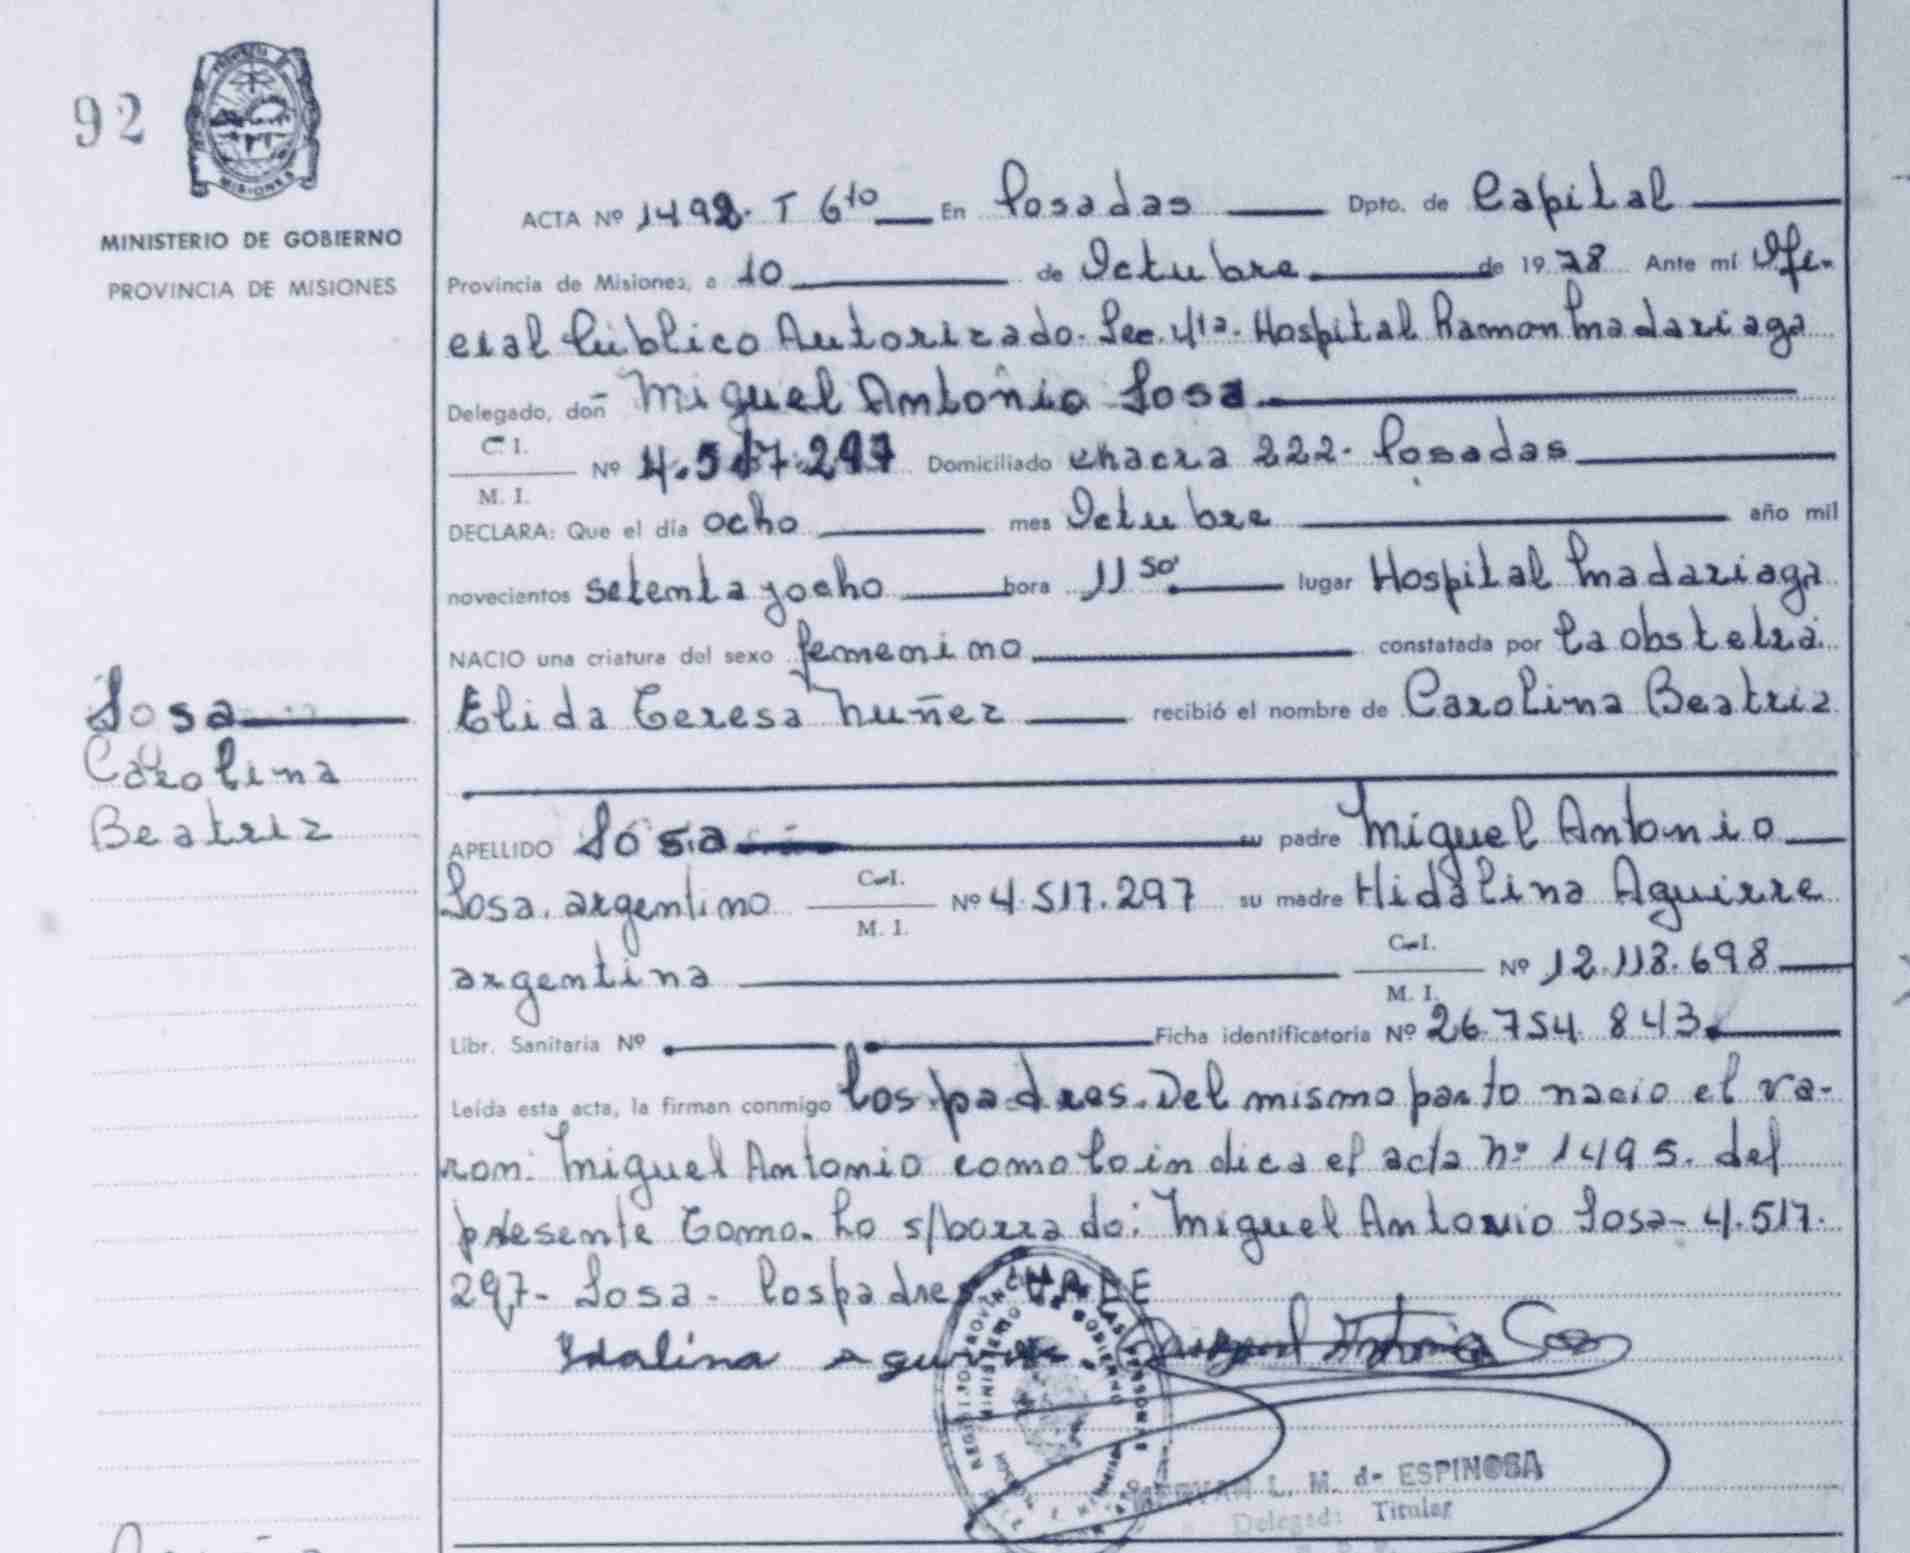 92
MISIONES
MINISTERIO DE GOBIERNO
PROVINCIA DE MISIONES
ACTA Nº 1492. T 6to En Posadas Dpto. de Capital
Provincia de Misiones, a 10 de Octubre de 1978 Ante mí Ofi-
cial Público Autorizado. Sec. 4ta. Hospital Ramon Madariaga
Delegado, don Miguel Antonio Sosa
C. I.
M. I.
Nº 4.517.297 Domiciliado chacra 222. Posadas
DECLARA: Que el día ocho mes Octubre año mil
novecientos setenta y ocho hora 11 50' lugar Hospital Madariaga
NACIO una criatura del sexo femenino constatada por la obstetra
Elida Teresa Nuñez recibió el nombre de Carolina Beatriz
Sosa
Carolina
Beatriz
APELLIDO Sosa su padre Miguel Antonio
Sosa. argentino C. I. M. I. Nº 4.517.297 su madre Hidalina Aguirre
argentina C. I. M. I. Nº 12.118.698
Libr. Sanitaria Nº Ficha identificatoria Nº 26.754.843.
Leída esta acta, la firman conmigo los padres. Del mismo parto nacio el va-
ron: Miguel Antonio como lo indica el acta Nº 1495. del
presente Tomo. Lo s/borrado: Miguel Antonio Sosa- 4.517.
297- Sosa- los padres VALE
Idalina Aguirre Miguel Antonio Sosa
L. M. de ESPINOSA
Titular